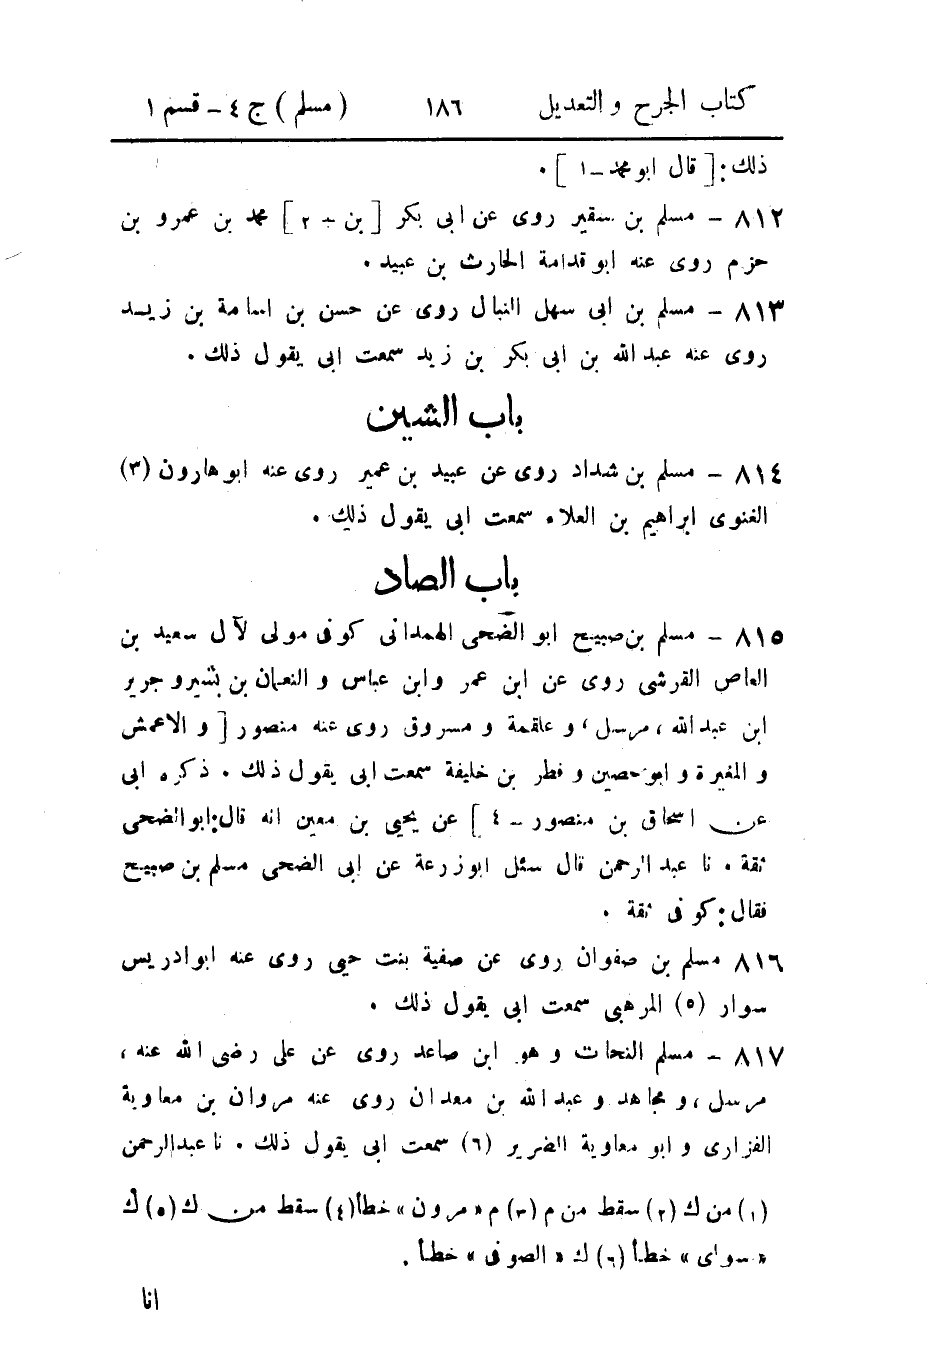 كتاب الجرح و التعديل ١٨٦ (مسلم) ج ٤ - قسم ١
ذلك: [قال ابو محمد - ١] .
٨١٢ - مسلم بن سقير روى عن ابى بكر [بن - ٢] محمد بن عمرو بن
حزم روى عنه ابو قدامة الحارث بن عبيد .
٨١٣ - مسلم بن ابى سهل النبال روى عن حسن بن اسامة بن زيد
روى عنه عبد الله بن ابى بكر بن زيد سمعت ابى يقول ذلك .
باب الشين
٨١٤ - مسلم بن شداد روى عن عبيد بن عمير روى عنه ابو هارون (٣)
الغنوى ابراهيم بن العلاء سمعت ابى يقول ذلك .
باب الصاد
٨١٥ - مسلم بن صبيح ابو الضحى الهمدانى كوفى مولى لآل سعيد بن
العاص القرشى روى عن ابن عمر وابن عباس و النعمان بن بشير و جرير
ابن عبد الله ، مرسل ، و علقمة و مسروق روى عنه منصور [و الاعمش
و المغيرة و ابو حصين و فطر بن خليفة سمعت ابى يقول ذلك . ذكره ابى
عن اسحاق بن منصور - ٤] عن يحيى بن معين انه قال: ابو الضحى
ثقة . نا عبد الرحمن قال سئل ابو زرعة عن ابى الضحى مسلم بن صبيح
فقال: كوفى ثقة .
٨١٦ مسلم بن صفوان روى عن صفية بنت حيى روى عنه ابو ادريس
سوار (٥) المرهبى سمعت ابى يقول ذلك .
٨١٧ - مسلم النحات و هو ابن صاعد روى عن على رضى الله عنه ،
مرسل ، و مجاهد و عبد الله بن معدان روى عنه مروان بن معاوية
الفزارى و ابو معاوية الضرير (٦) سمعت ابى يقول ذلك . نا عبد الرحمن
(١) من ك (٢) سقط من م (٣) م « مرون » خطأ (٤) سقط من ك (٥) ك
« سواى » خطأ (٦) ك « الصوفى » خطأ .
انا